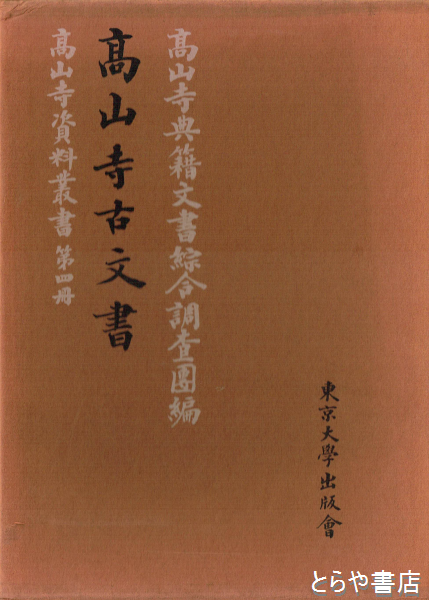 髙山寺典籍文書綜合調査團編
髙山寺古文書
髙山寺資料叢書 第四冊
東京大學出版會
とらや書店